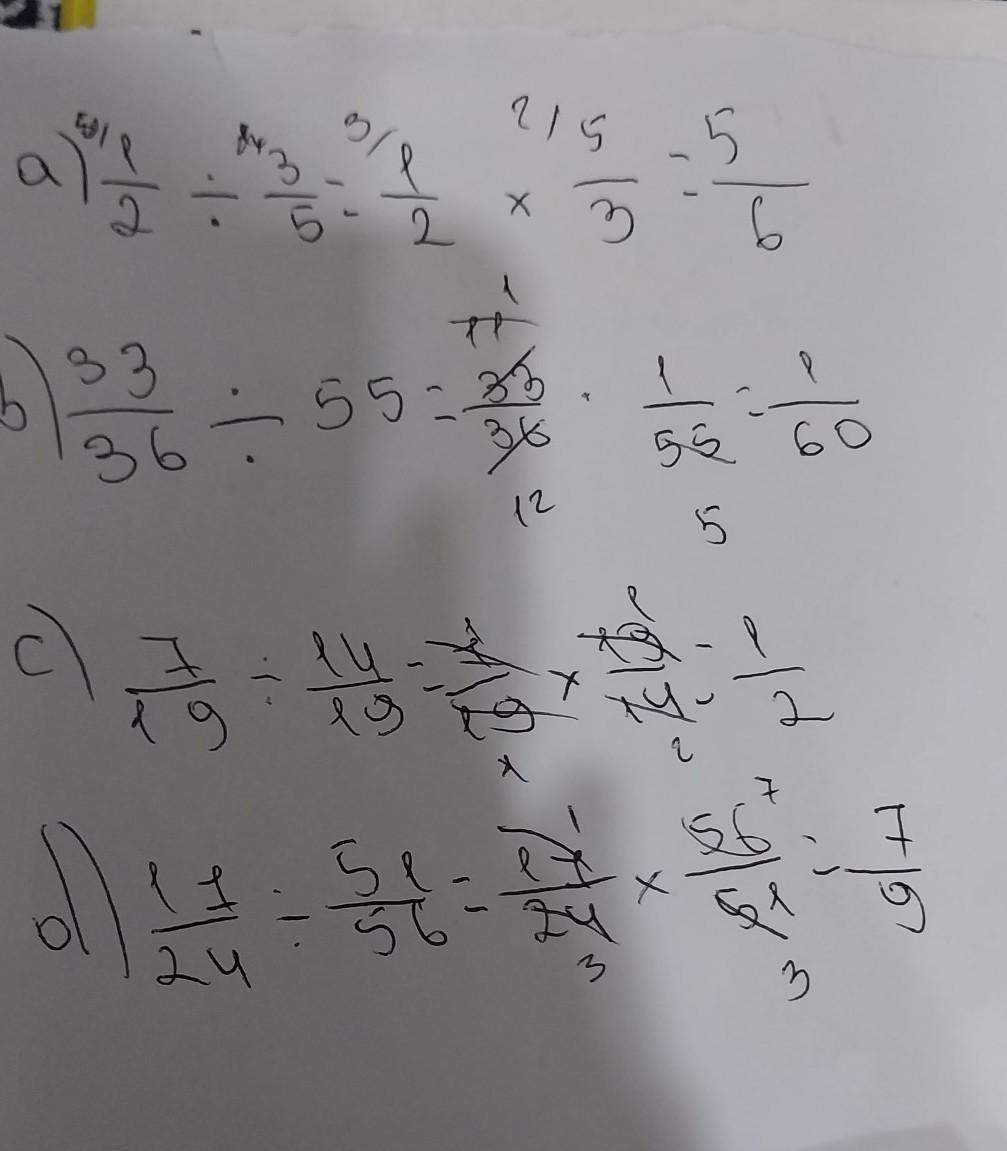 a) 1/2 ÷ 3/5 = 3/ 1/2 × 2/ 5/3 = 5/6
b) 33/36 ÷ 55 = 11 1 33/36 12 · 1/55 5 = 1/60
c) 7/19 ÷ 14/19 = 7 1/19 1 × 19 1/14 2 = 1/2
d) 17/24 ÷ 51/56 = 17 1/24 3 × 56 7/51 3 = 7/9